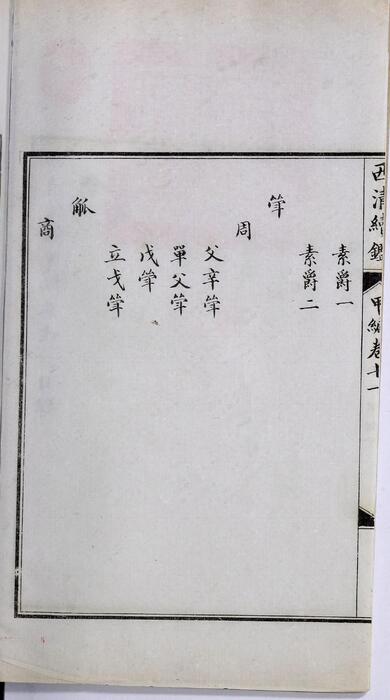 西清續鑑 甲編卷十一
素爵一
素爵二
斝
周
父辛斝
單父斝
戊斝
立戈斝
觚
商